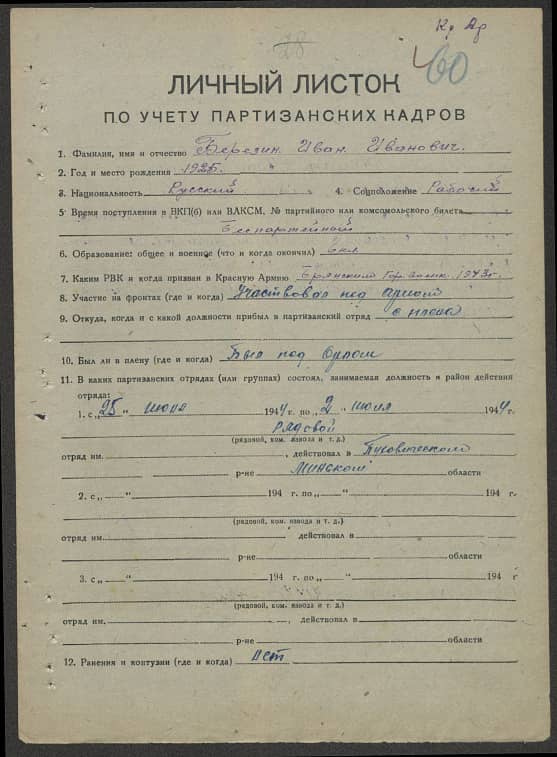 28
Кр Ар
60
ЛИЧНЫЙ ЛИСТОК
ПО УЧЕТУ ПАРТИЗАНСКИХ КАДРОВ
1. Фамилия, имя и отчество Березин Иван Иванович.
2. Год и место рождения 1925.
3. Национальность Русский 4. Соцположение Рабочий
5. Время поступления в ВКП(б) или ВЛКСМ, № партийного или комсомольского билета
Беспартейный
6. Образование: общее и военное (что и когда окончил) 6кл.
7. Каким РВК и когда призван в Красную Армию Брянским Гор. 1943г.
8. Участие на фронтах (где и когда) Участвовал под
9. Откуда, когда и с какой должности прибыл в партизанский отряд с плена
10. Был ли в плену (где и когда) Был под Орлом
11. В каких партизанских отрядах (или группах) состоял, занимаемая должность и район действия
отряда:
1. с „25" июня 1944 г. по „2" июля 1944 г.
Рядовой
(рядовой, ком. взвода и т. д.)
отряд им. , действовал в Пуховическом
р-не Минской области
2. с „ " 194 г. по „ " 194 г.
(рядовой, ком. взвода и т. д.)
отряд им. , действовал в
р-не области
3. с „ " 194 г. по „ " 194 г
(рядовой, ком. взвода и т. д.)
отряд им. , действовал в
р-не области
12. Ранения и контузии (где и когда) Нет